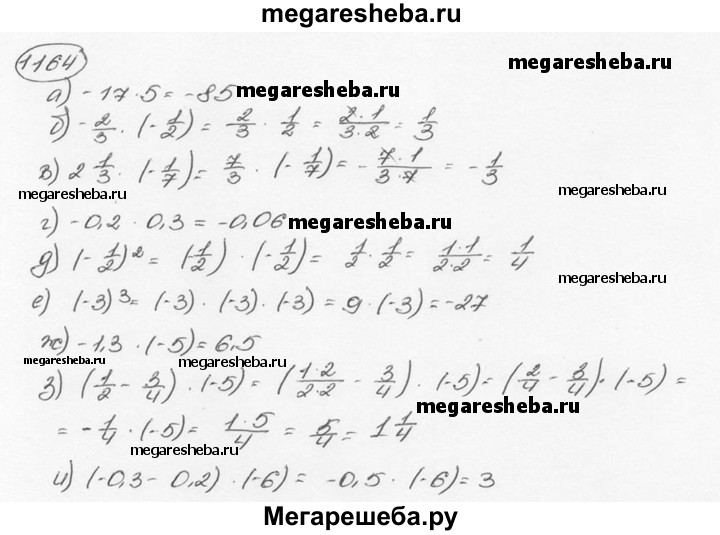 megaresheba.ru
1164
megaresheba.ru
а) -17 · 5 = -85
megaresheba.ru
б) -2/3 · (-1/2) = 2/3 · 1/2 = 2·1/3·2 = 1/3
в) 2 1/3 · (-1/7) = 7/3 · (-1/7) = -7·1/3·7 = -1/3
megaresheba.ru
megaresheba.ru
г) -0,2 · 0,3 = -0,06
megaresheba.ru
д) (-1/2)² = (-1/2) · (-1/2) = 1/2 · 1/2 = 1·1/2·2 = 1/4
megaresheba.ru
е) (-3)³ = (-3) · (-3) · (-3) = 9 · (-3) = -27
ж) -1,3 · (-5) = 6,5
megaresheba.ru
megaresheba.ru
з) (1/2 - 3/4) · (-5) = (1·2/2·2 - 3/4) · (-5) = (2/4 - 3/4) · (-5) =
megaresheba.ru
= -1/4 · (-5) = 1·5/4 = 5/4 = 1 1/4
megaresheba.ru
и) (-0,3 - 0,2) · (-6) = -0,5 · (-6) = 3
Мегарешеба.ру